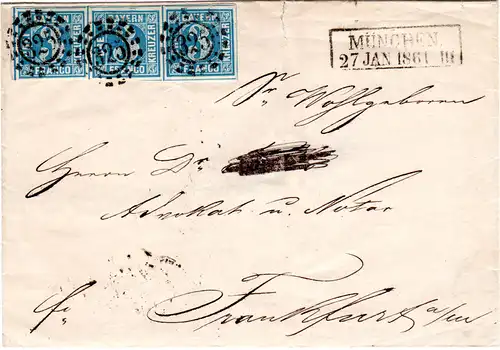 BAYERN BAYERN BAYERN
3 3 3
325 325 325
KREUZER KREUZER KREUZER
FRANCO FRANCO FRANCO
MÜNCHEN.
27 JAN 1861 III
Sr Wohlgeboren
Herrn Dr.
Advokat u. Notar
Frankfurt a/m